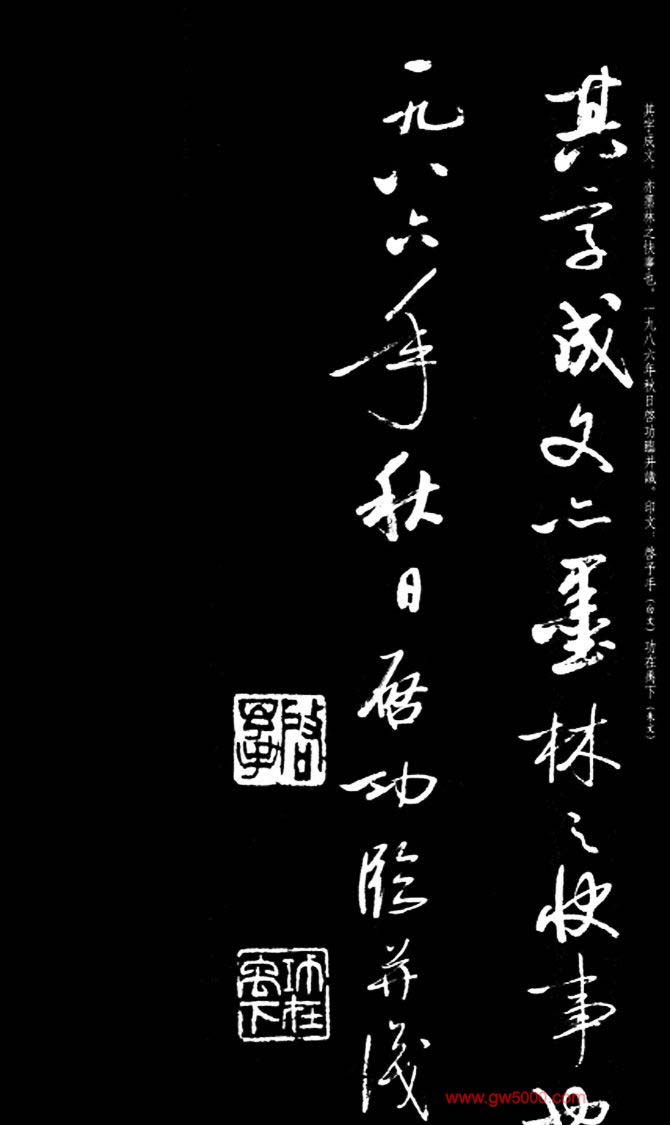 其字成文。亦墨林之快事也。一九八六年秋日啓功臨并識。印文：啓予手（白文）功在禹下（朱文）
其字成文亦墨林之快事也
一九八六年秋日启功临并识
啓予手
功在禹下
www.gw5000.com